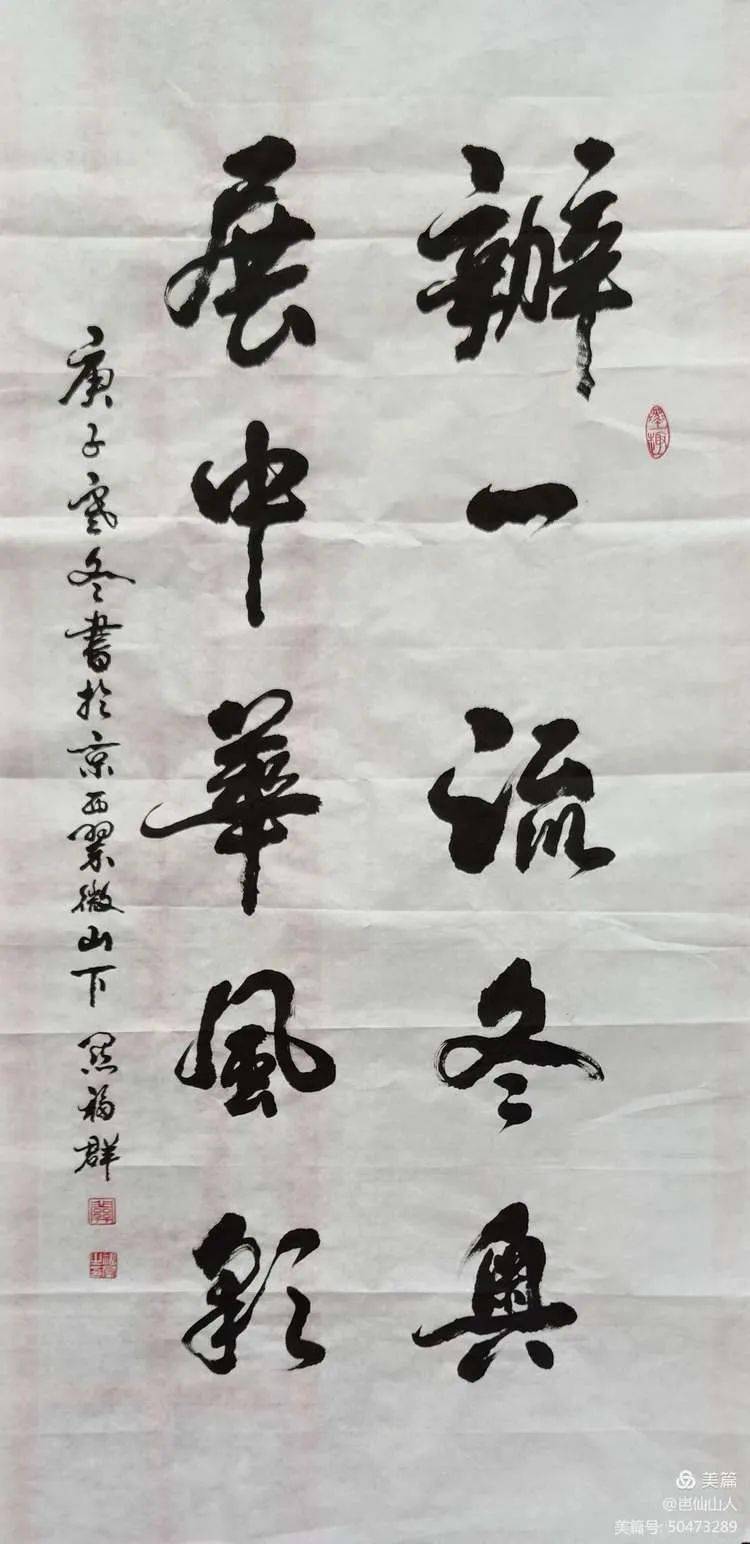 辦一流冬奧
展中華風彩
庚子寒冬書於京西翠微山下 福群
美篇
@岜仙山人
美篇号: 50473289